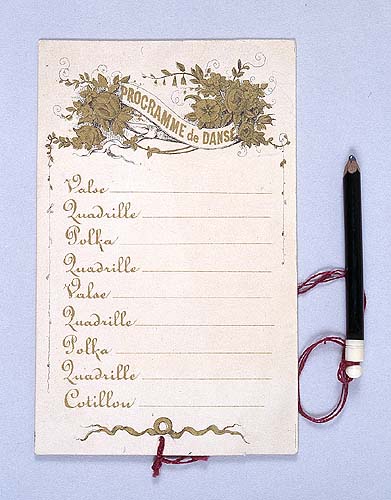 PROGRAMME de DANSE
Valse
Quadrille
Polka
Quadrille
Valse
Quadrille
Polka
Quadrille
Cotillon